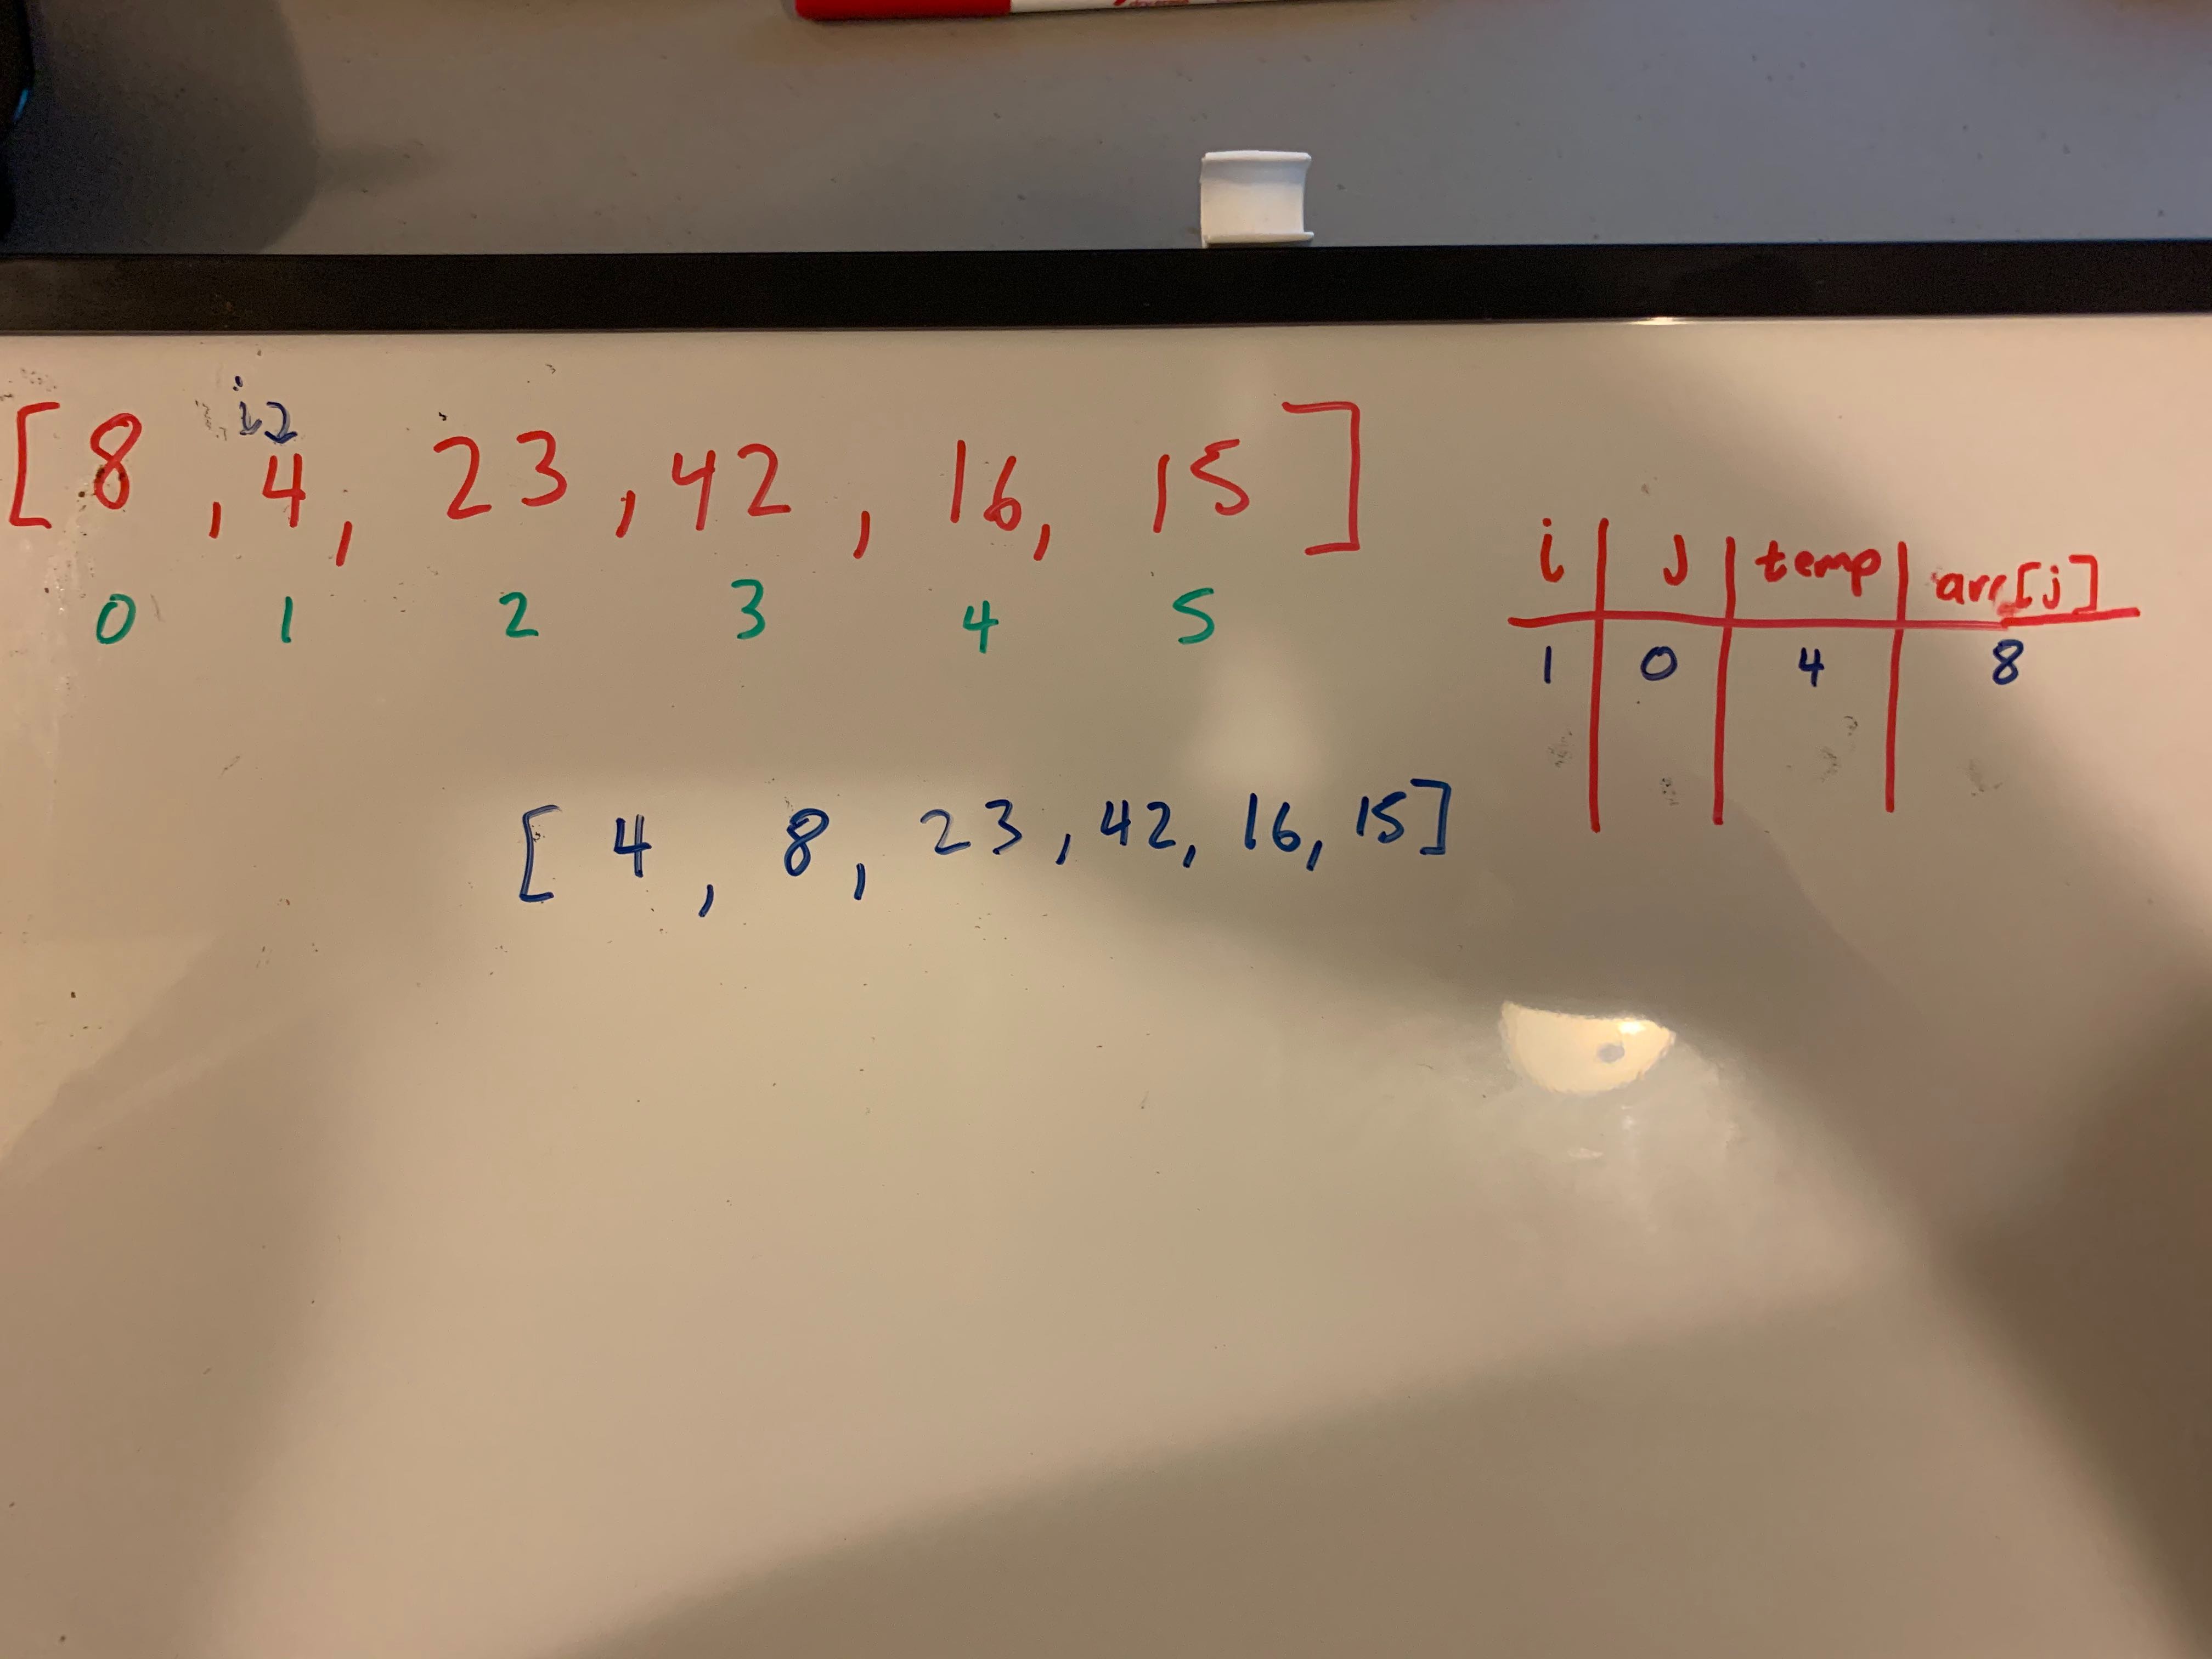 i
[8, 4, 23, 42, 16, 15]
0 1 2 3 4 5
i j temp arr[j]
1 0 4 8
[4, 8, 23, 42, 16, 15]